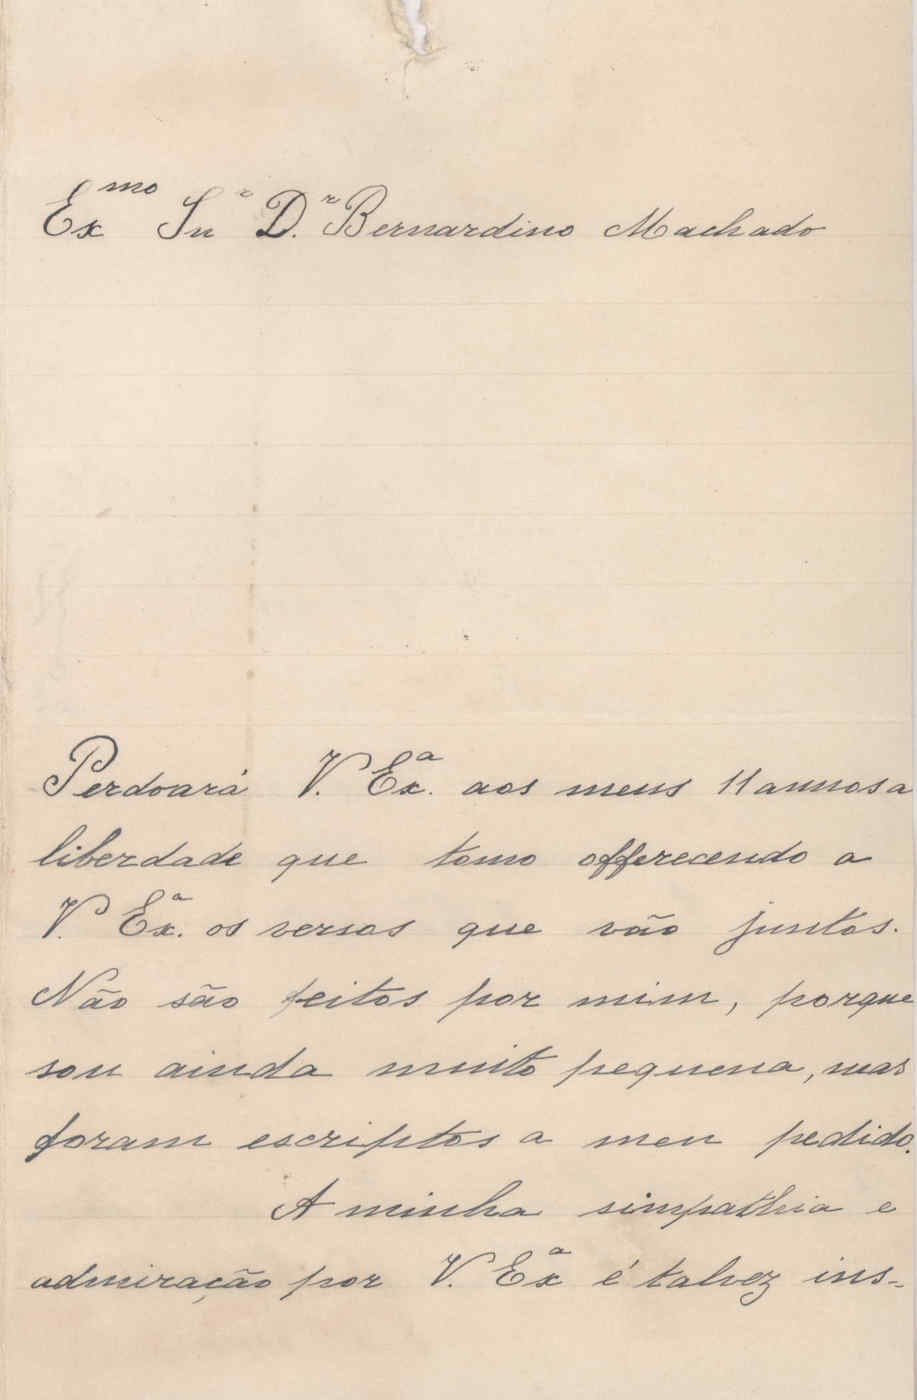 Ex.mo Snr D.r Bernardino Machado
Perdoará V. Ex.a aos meus 11 annos a
liberdade que tomo offerecendo a
V. Ex.a os versos que vão juntos.
Não são feitos por mim, porque
sou ainda muito pequena, mas
foram escriptos a meu pedido.
A minha simpathia e
admiração por V. Ex.a é talvez ins-